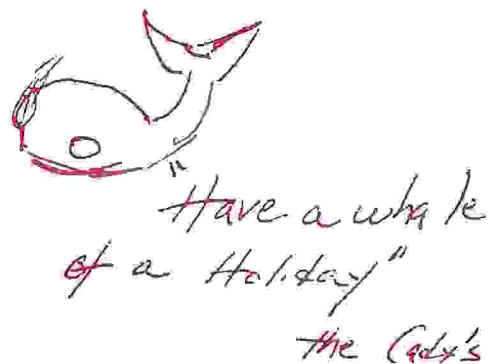 "Have a whale
of a Holiday"
the Cady's